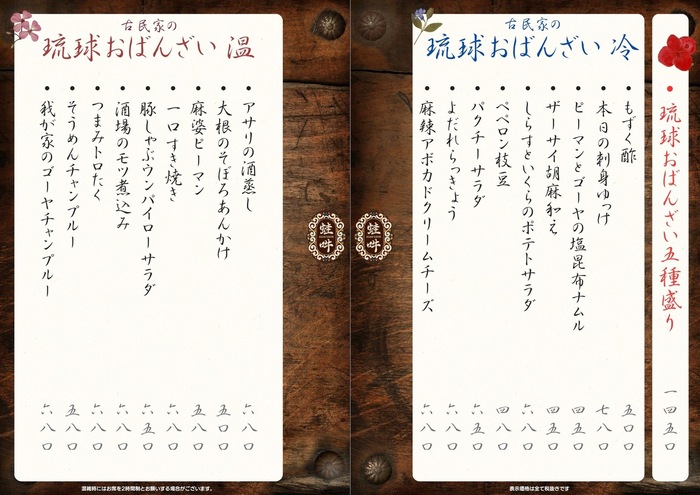 ● 琉球おばんざい五種盛り 一四五〇
古民家の
琉球おばんざい 冷
● もずく酢 五〇〇
● 本日の刺身ゆっけ 七八〇
● ピーマンとゴーヤの塩昆布ナムル 四五〇
● ザーサイ胡麻和え 四五〇
● しらすといくらのポテトサラダ 六八〇
● ペペロン枝豆 四八〇
● パクチーサラダ 六五〇
● よだれらっきょう 六八〇
● 麻辣アボカドクリームチーズ 六八〇
表示価格は全て税抜きです
古民家の
琉球おばんざい 温
● アサリの酒蒸し 六八〇
● 大根のそぼろあんかけ 五〇〇
● 麻婆ピーマン 五八〇
● 一口すき焼き 六八〇
● 豚しゃぶウンパイローサラダ 六五〇
● 酒場のモツ煮込み 六八〇
● つまみトロたく 六八〇
● そうめんチャンプルー 五八〇
● 我が家のゴーヤチャンプルー 六八〇
混雑時にはお席を2時間制とお願いする場合がございます。